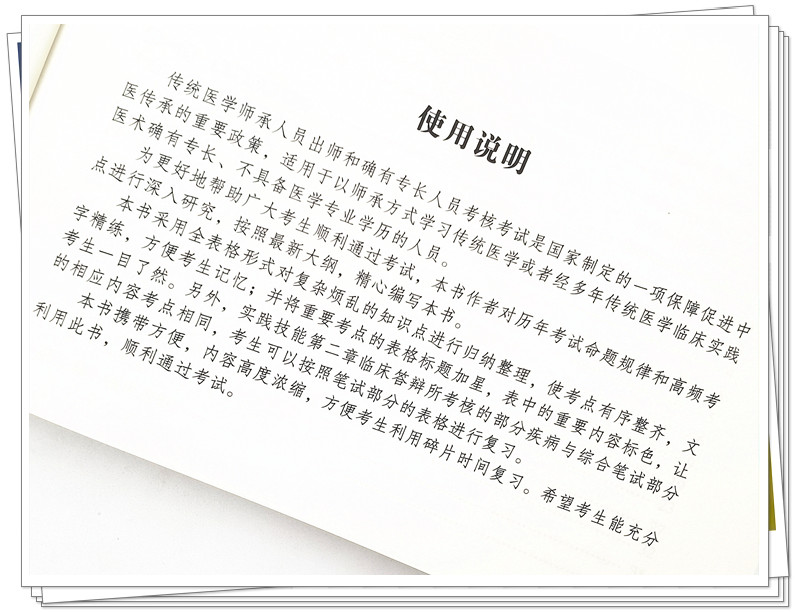 使用说明
传统医学师承人员出师和确有专长人员考核考试是国家制定的一项保障促进中
医传承的重要政策，适用于以师承方式学习传统医学或者经多年传统医学临床实践
医术确有专长、不具备医学专业学历的人员。
为更好地帮助广大考生顺利通过考试，本书作者对历年考试命题规律和高频考
点进行深入研究，按照最新大纲，精心编写本书。
本书采用全表格形式对复杂烦乱的知识点进行归纳整理，使考点有序整齐，文
字精练，方便考生记忆；并将重要考点的表格标题加星，表中的重要内容标色，让
考生一目了然。另外，实践技能第二章临床答辩所考核的部分疾病与综合笔试部分
的相应内容考点相同，考生可以按照笔试部分的表格进行复习。
本书携带方便，内容高度浓缩，方便考生利用碎片时间复习。希望考生能充分
利用此书，顺利通过考试。